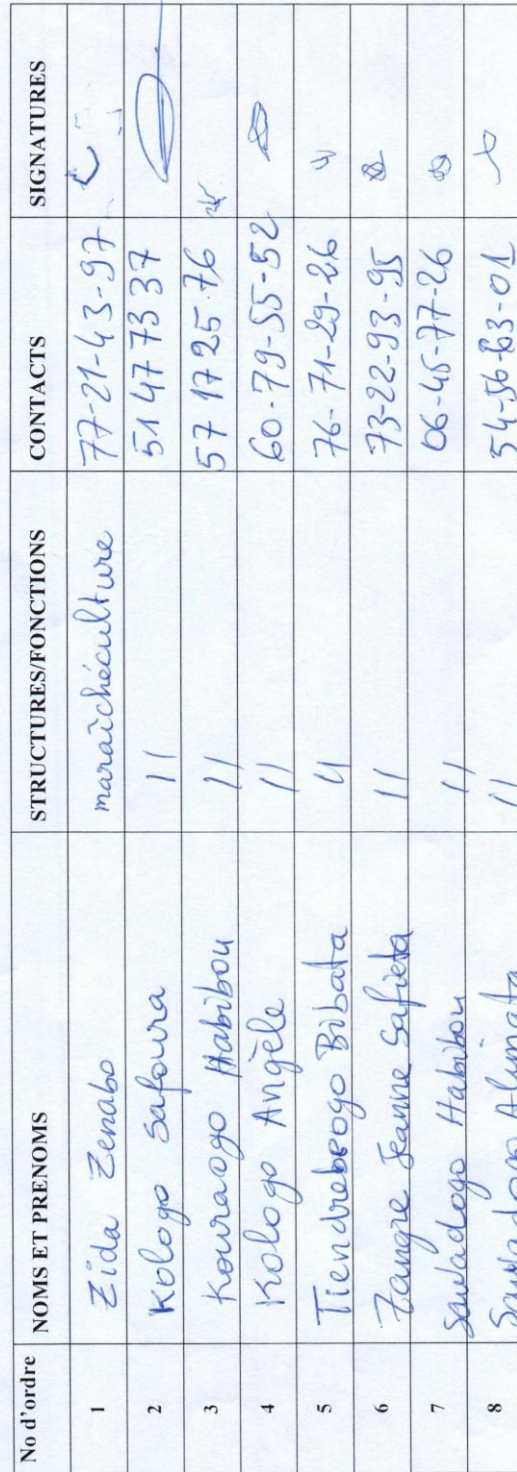 No d'ordre NOMS ET PRENOMS STRUCTURES/FONCTIONS CONTACTS SIGNATURES
1 Zida Zenabo maraîchéculture 77-21-43-97
2 Kologo Safoura 11 51 47 73 37
3 Kouraogo Habibou 11 57 17 25 76
4 Kologo Angèle 11 60-79-55-52
5 Tiendrebeogo Bibata 11 76-71-29-26
6 Zangre Jeanne Safieta 11 73-22-93-95
7 Sawadogo Habibou 11 06-45-77-26
8 Sawadogo Alimata 11 54-56-63-01